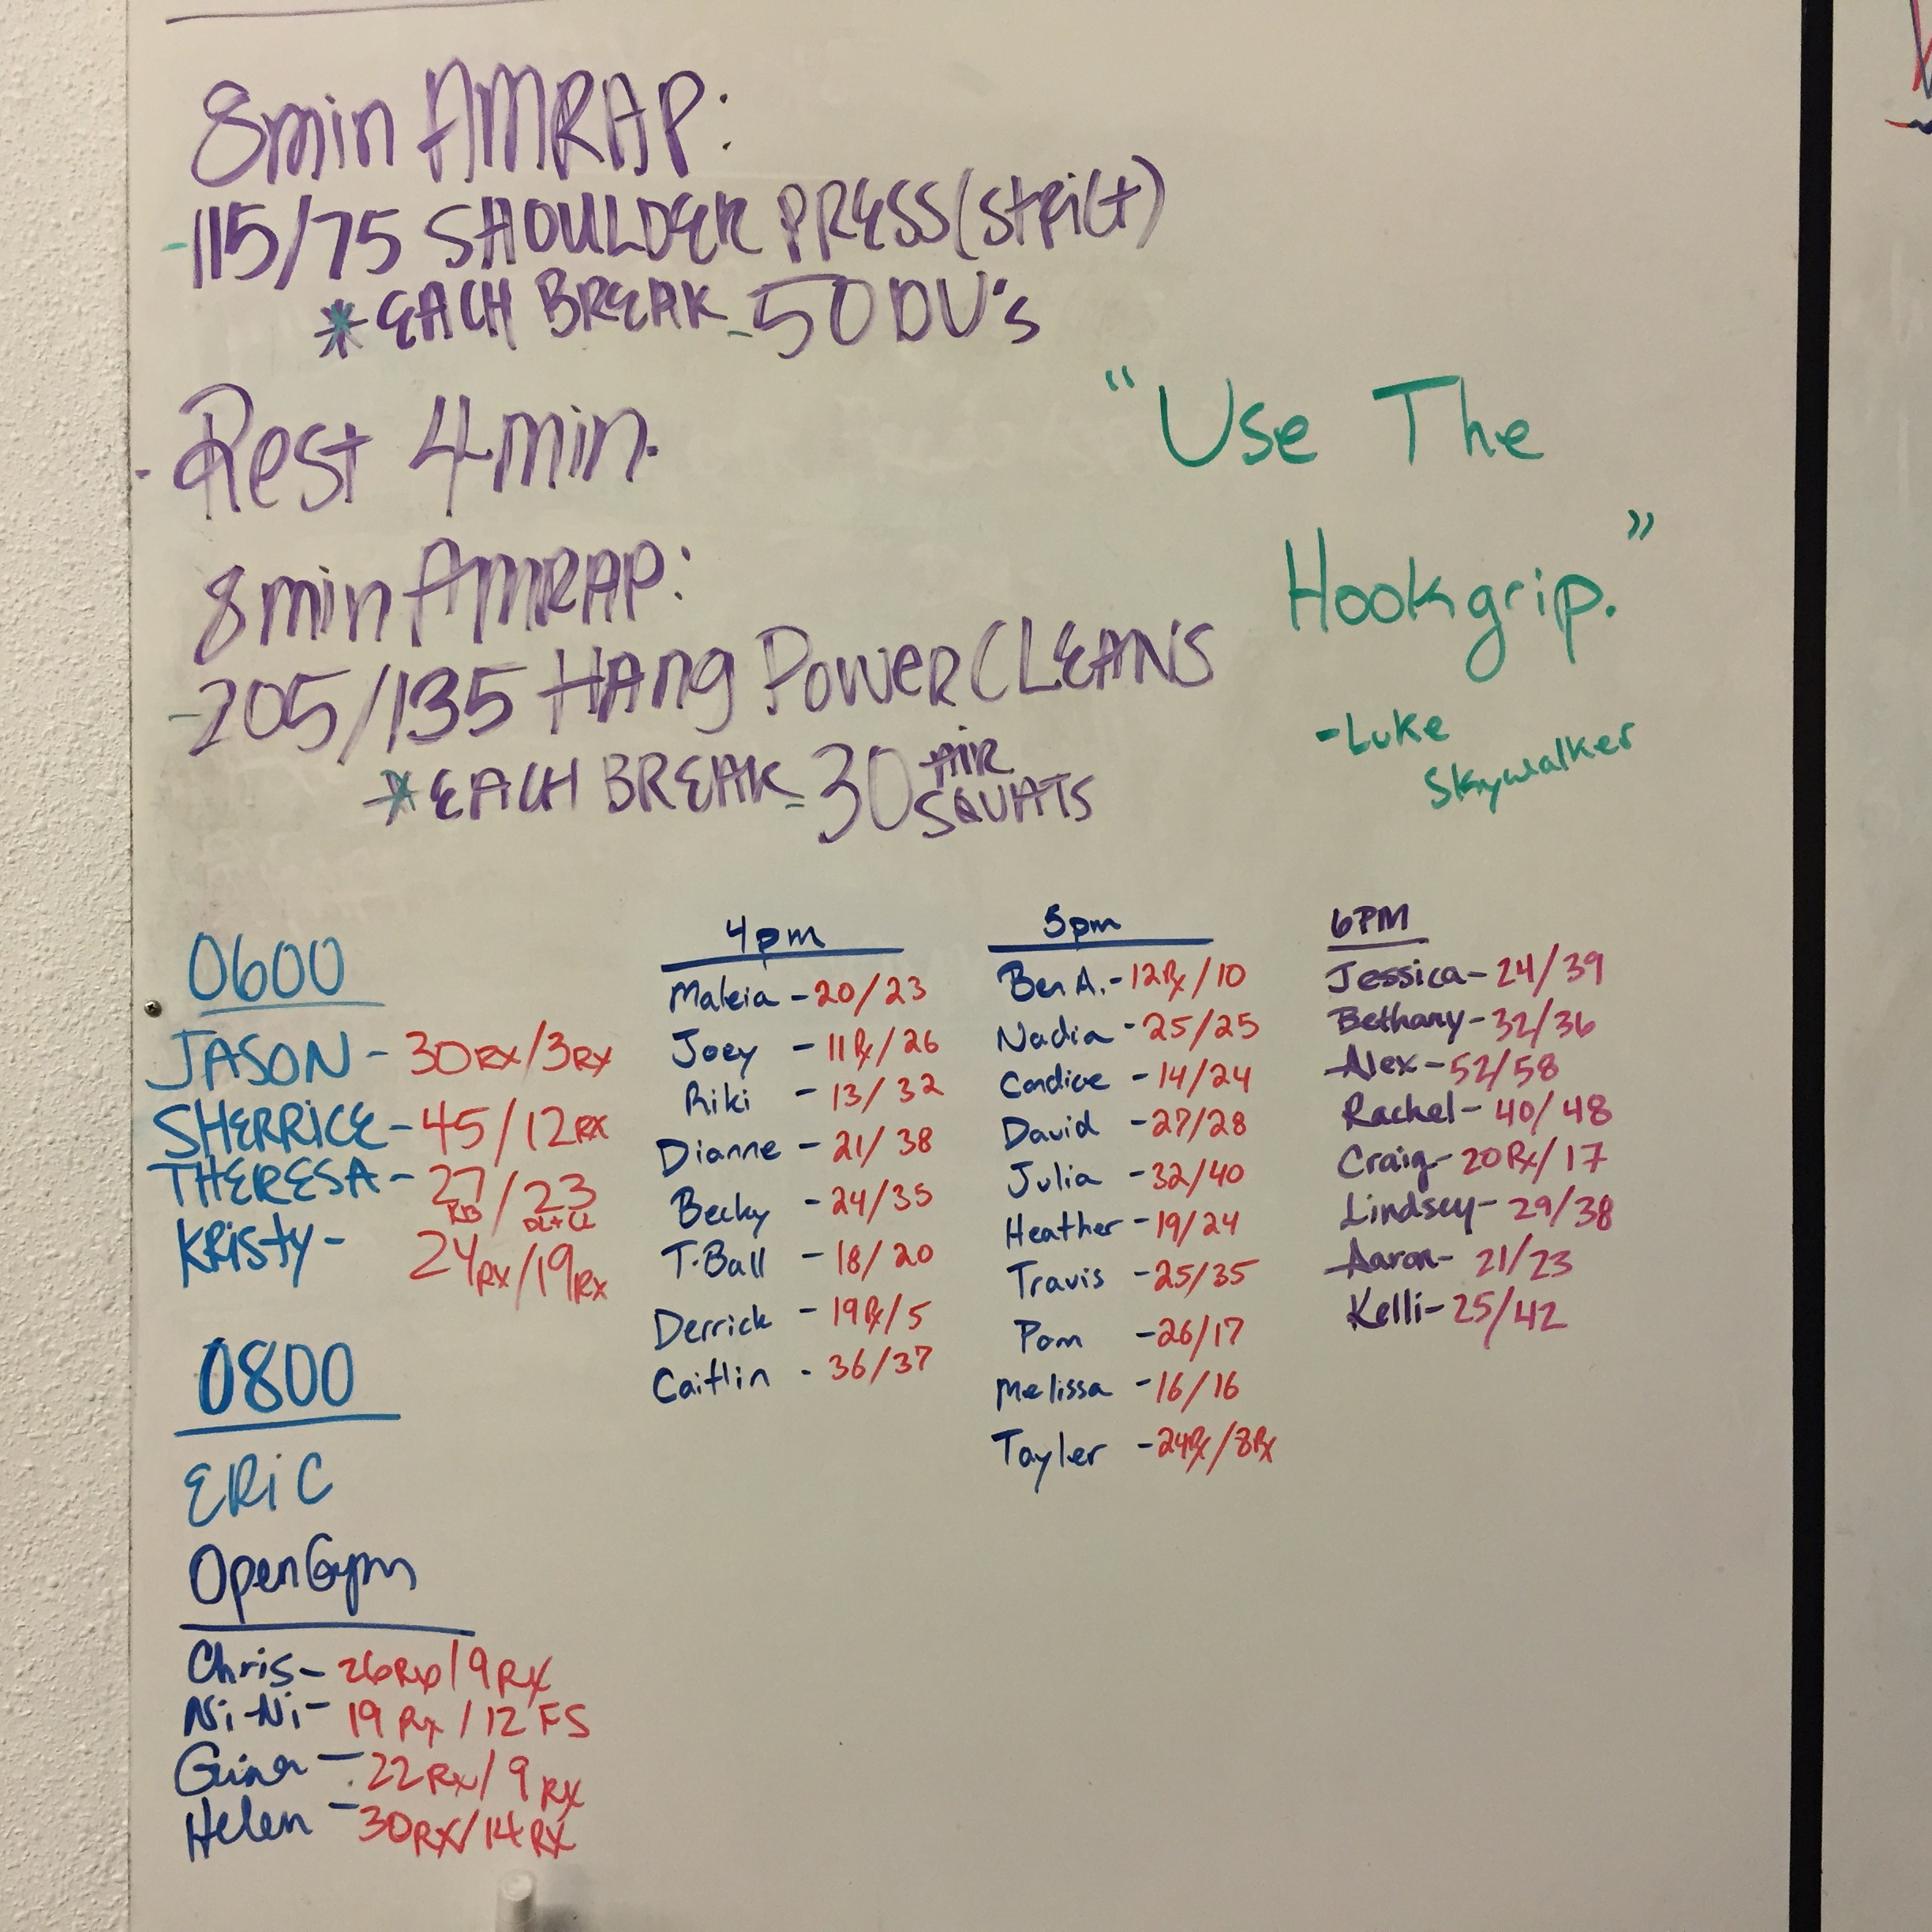 8min AMRAP:
-115/75 SHOULDER PRESS (Strict)
*EACH BREAK - 50 DU's
- Rest 4min.
8min AMRAP:
-205/135 Hang Power CLEANS
*EACH BREAK - 30 AIR SQUATS
"Use The
Hookgrip."
-Luke
Skywalker
0600
JASON - 30RX/3RX
SHERRICE - 45/12RX
THERESA - 27/23
KRISTY - 24RX/19RX
0800
ERIC
Open Gym
Chris - 26Rx/9RX
Ni-Ni - 19 Rx/12 FS
Gina - 22Rx/9RX
Helen - 30RX/14RX
4pm
Maleia - 20/23
Joey - 11Rx/26
Riki - 13/32
Dianne - 21/38
Becky - 24/35
T-Ball - 18/20
Derrick - 19Rx/5
Caitlin - 36/37
5pm
Ben A. - 12Rx/10
Nadia - 25/25
Candice - 14/24
David - 27/28
Julia - 32/40
Heather - 19/24
Travis - 25/35
Pam - 26/17
Melissa - 16/16
Tayler - 24Rx/8Rx
6PM
Jessica - 24/39
Bethany - 32/36
Alex - 52/58
Rachel - 40/48
Craig - 20Rx/17
Lindsey - 29/38
Aaron - 21/23
Kelli - 25/42